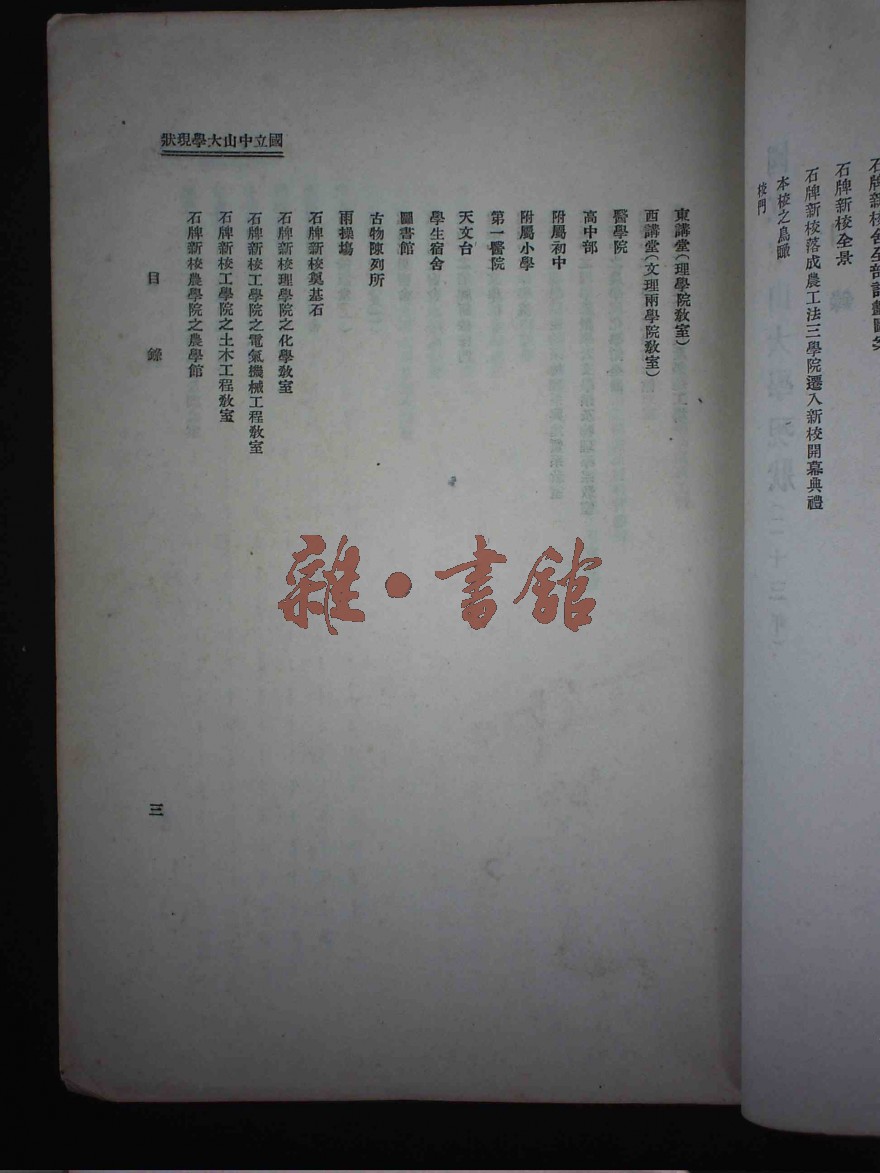 石牌新校舍全部計劃圖
石牌新校全景
石牌新校落成農工法三學院遷入新校開幕典禮
本校之鳥瞰
校門
國立中山大學現狀
東講堂(理學院教室)
西講堂(文理兩學院教室)
醫學院
高中部
附屬初中
附屬小學
第一醫院
天文台
學生宿舍
圖書館
古物陳列所
雨操場
石牌新校奠基石
石牌新校理學院之化學教室
石牌新校工學院之電氣機械工程教室
石牌新校工學院之土木工程教室
石牌新校農學院之農學館
目錄
三
雜·書館